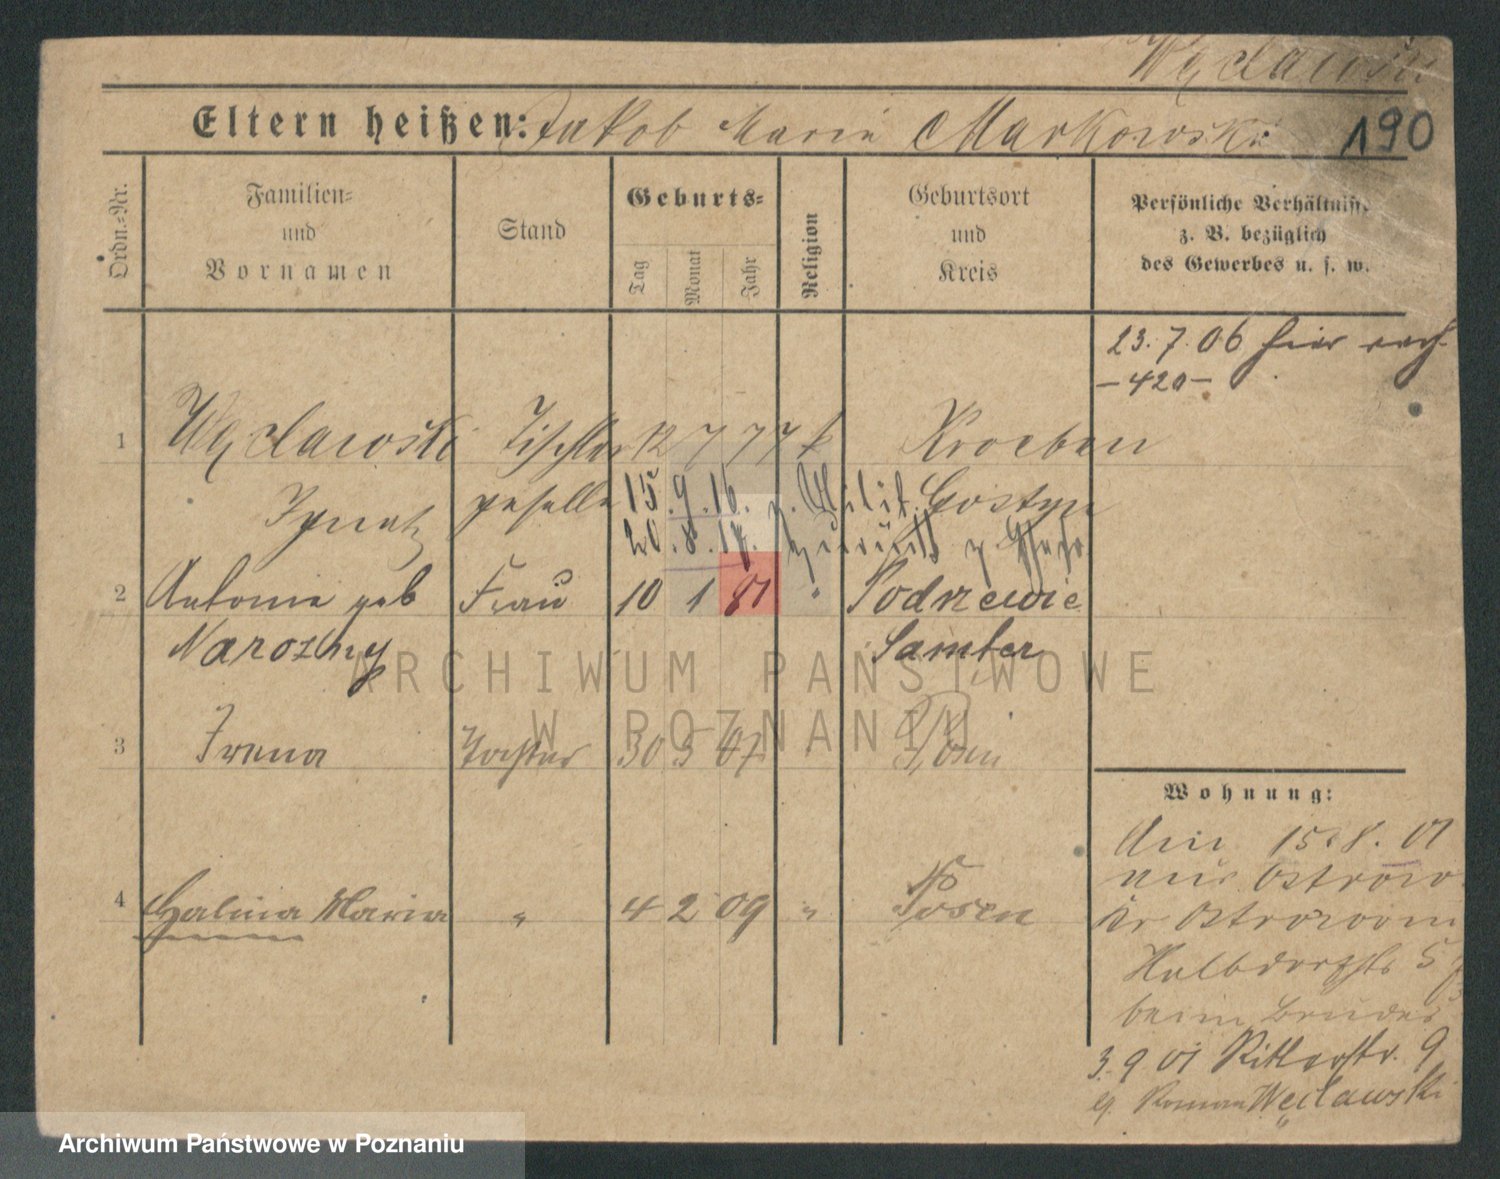 Węclawski
Eltern heißen: Jakob Maria Markowski
190
Ordn.-Nr.
Familien-
und
Vornamen
Stand
Geburts-
Tag
Monat
Jahr
Religion
Geburtsort
und
Kreis
Persönliche Verhältnisse
z. B. bezüglich
des Gewerbes u. s. w.
23. 7. 06 hier
-420-
1 Węclawski Tischler 12 7 77 k Kroeben
Ignatz geselle 15. 9. 16. z. Milit. Gostyn
20. 8. 18. zurück
2 Antonie geb Frau 10 1 81 " Podrzewie
Narozny Samter
3 Irena Tochter 30 3 07 " Posen
4 Halina Maria " 4 2 09 " Posen
Wohnung:
Am 15. 8. 01
aus Ostrow
Kr Ostrowo
Halbdorfstr 5
beim Bruder
3. 9 01 Ritterstr. 9
Roman Węclawski
ARCHIWUM PAŃSTWOWE
W POZNANIU
Archiwum Państwowe w Poznaniu